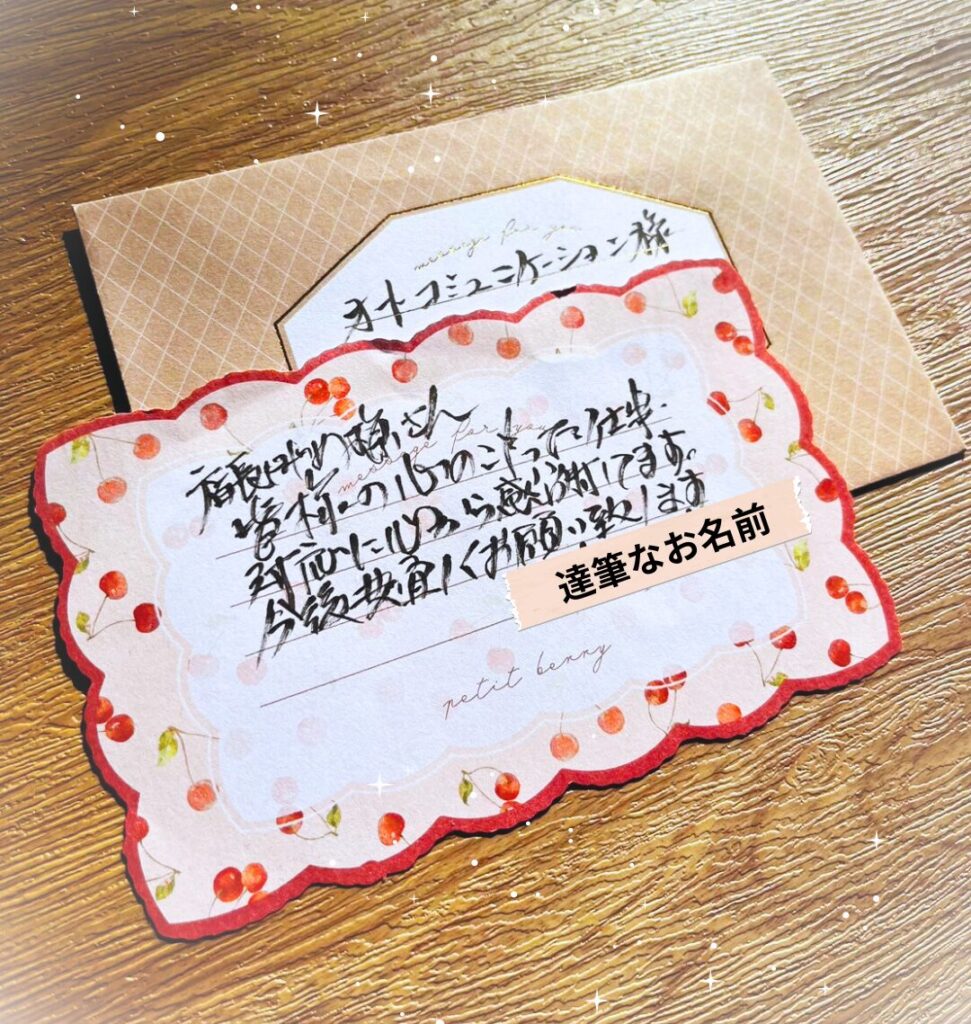 message for you
オトコミュニケーション様
message for you
皆様の心のこもった仕事
対応に心から感謝してます。
今後共宜しくお願い致します
達筆なお名前
petit berry